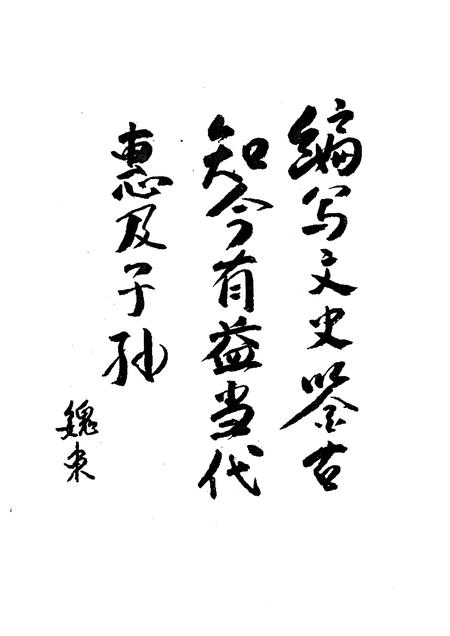 编写文史鉴古
知今有益当代
惠及子孙
魏东